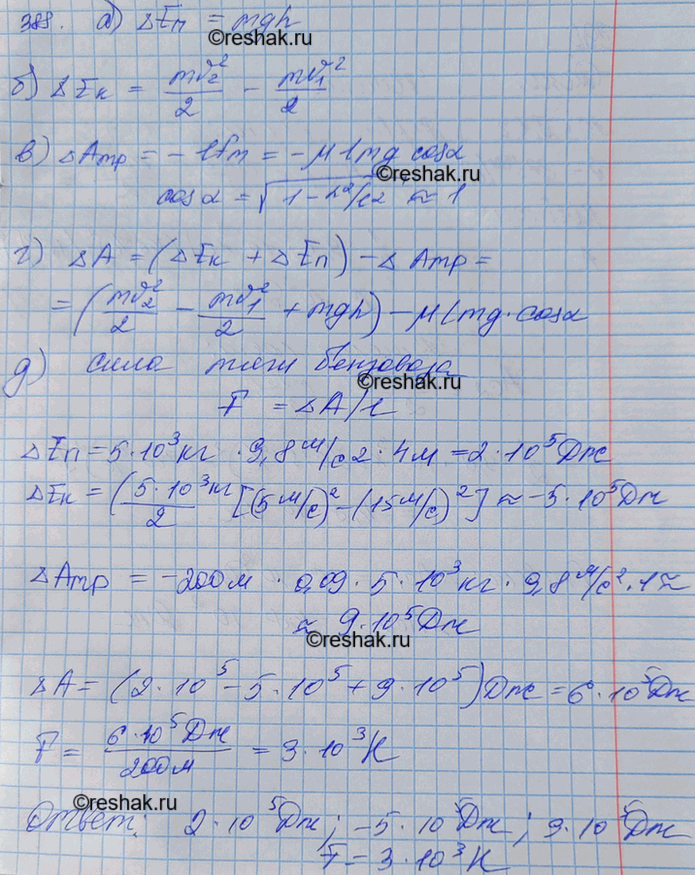 388. а) ΔEп = mgh
©reshak.ru
б) ΔEк = mv₂²/2 - mv₁²/2
в) ΔAтр = - lFт = -μ l mg cosα
©reshak.ru
cosα = √(1-h²/l²) ≈ 1
г) ΔA = (ΔEк + ΔEп) - ΔAтр =
= (mv₂²/2 - mv₁²/2 + mgh) - μ l mg · cosα
д) сила тяги бензовоза
©reshak.ru
F = ΔA/l
ΔEп = 5·10³кг · 9,8 м/с2 · 4м = 2·10⁵Дж
ΔEк = (5·10³кг/2 [(5м/с)² - (15м/с)²] ≈ -5·10⁵Дж
ΔAтр = -200м · 0,09 · 5·10³кг · 9,8 м/с² · 1 ≈
≈ 9·10⁵Дж
©reshak.ru
ΔA = (2·10⁵ - 5·10⁵ + 9·10⁵)Дж = 6·10⁵Дж
F = 6·10⁵Дж/200м = 3·10³Н
©reshak.ru
Ответ: 2·10⁵Дж; -5·10⁵Дж; 9·10⁵Дж
F = 3·10³Н
©reshak.ru